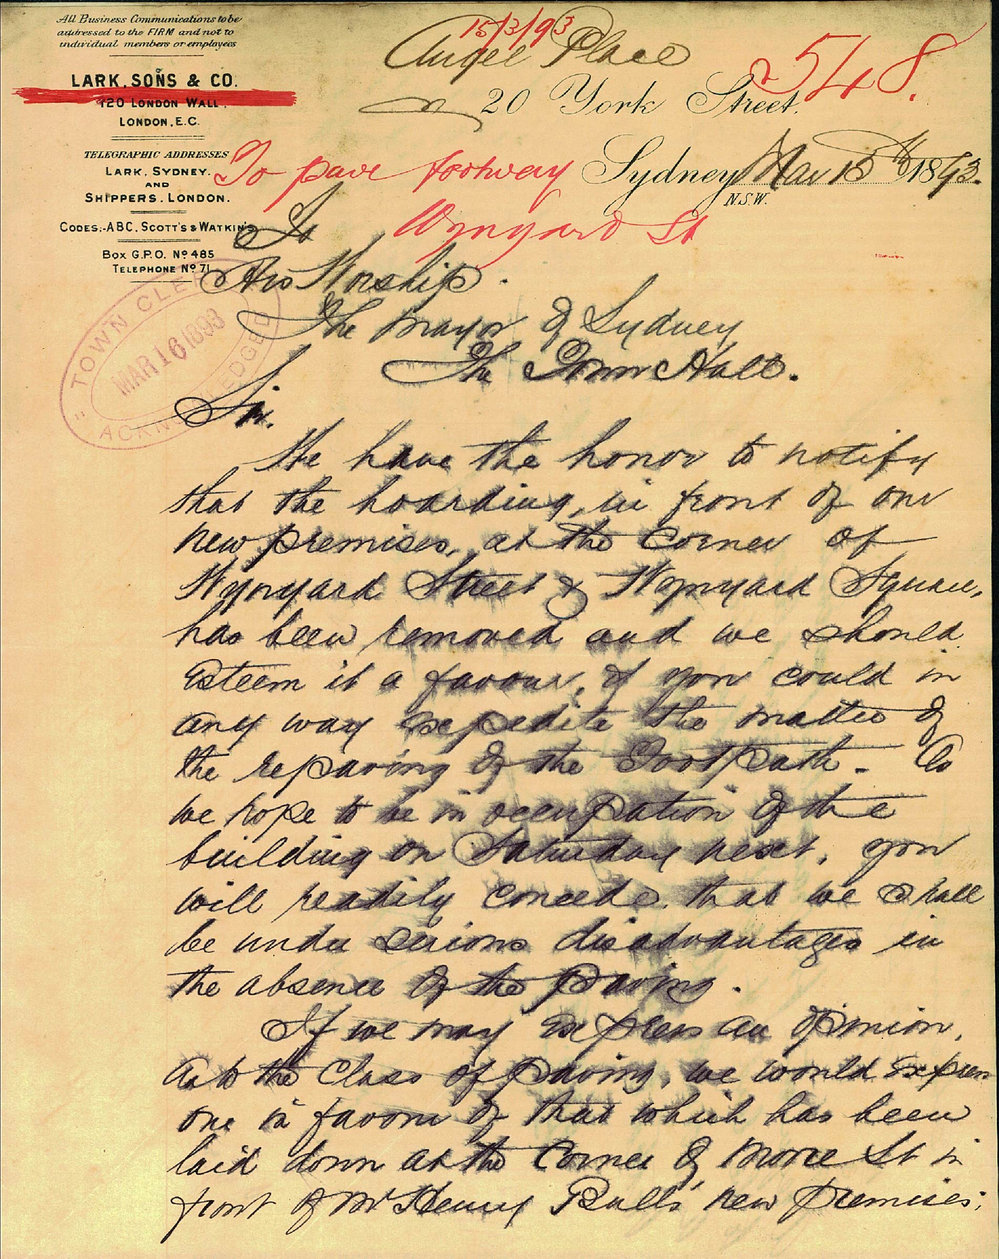 All Business Communications to be
addressed to the FIRM and not to
individual members or employees
LARK, SONS & CO.
120 LONDON WALL,
LONDON, E.C.
TELEGRAPHIC ADDRESSES
LARK, SYDNEY.
AND
SHIPPERS, LONDON.
CODES:-A B C, SCOTT'S & WATKIN'S
BOX G.P.O. No 485
TELEPHONE No 71
15/3/93
Angel Place
20 York Street.
548.
Sydney Mar 15th 1893.
N.S.W.
To pave footway
Wynyard St
TOWN CLERK
MAR 16 1893
ACKNOWLEDGED
To
His Worship
The Mayor of Sydney
The Town Hall.
Sir.
We have the honor to notify
that the hoarding, in front of our
new premises, at the corner of
Wynyard Street & Wynyard Square,
has been removed and we should
esteem it a favour, if you could in
any way expedite the matter of
the repaving of the Footpath. As
we hope to be in occupation of the
building on Saturday next, you
will readily concede, that we shall
be under serious disadvantages in
the absence of the paving.
If we may express an opinion,
as to the class of paving, we would express
one in favour of that which has been
laid down at the corner of Moore St in
front of Mr Henry Bull's new premises;